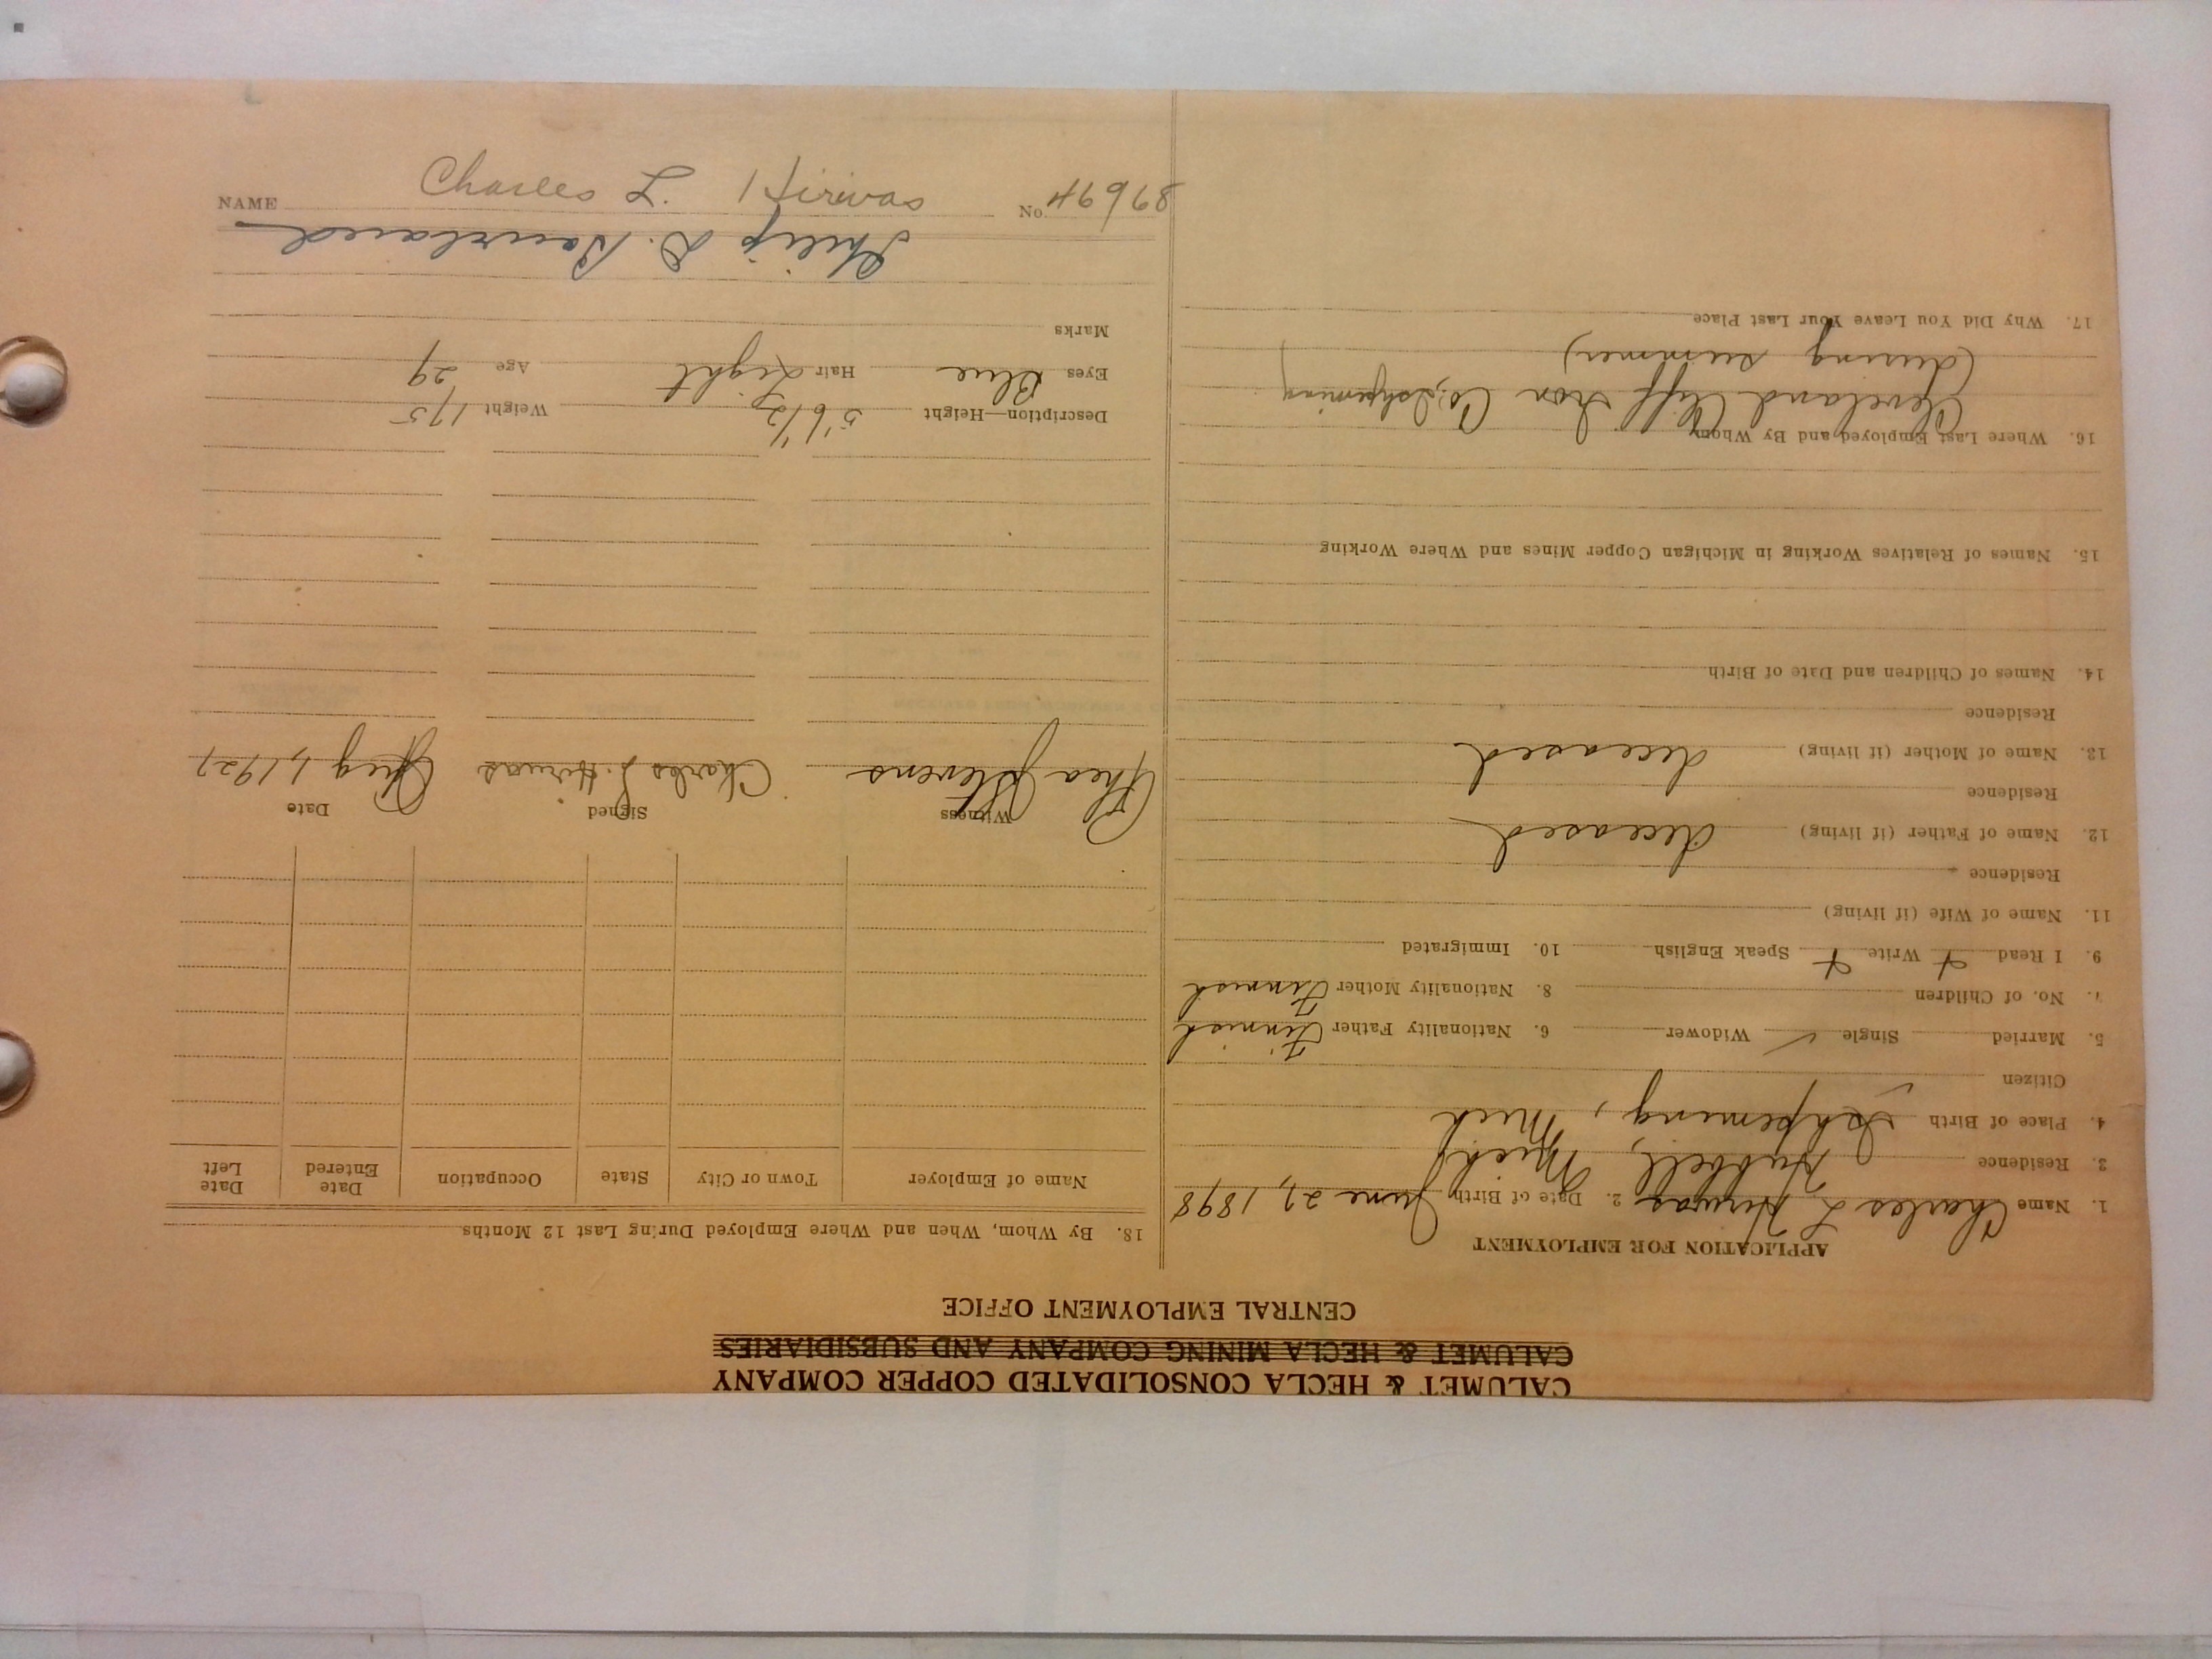 CALUMET & HECLA CONSOLIDATED COPPER COMPANY
CALUMET & HECLA MINING COMPANY AND SUBSIDIARIES
CENTRAL EMPLOYMENT OFFICE
APPLICATION FOR EMPLOYMENT
1. Name Charles L Hirvas 2. Date of Birth June 27, 1898
3. Residence Hubbell, Mich
4. Place of Birth Ishpeming, Mich
Citizen ✓
5. Married Single ✓ Widower 6. Nationality Father Finnish
7. No. of Children 8. Nationality Mother Finnish
9. I Read + Write + Speak English 10. Immigrated
11. Name of Wife (if living)
Residence
12. Name of Father (if living) deceased
Residence
13. Name of Mother (if living) deceased
Residence
14. Names of Children and Date of Birth
15. Names of Relatives Working in Michigan Copper Mines and Where Working
16. Where Last Employed and By Whom
Cleveland Cliff Iron Co, Ishpeming
(during summer)
17. Why Did You Leave Your Last Place
18. By Whom, When and Where Employed During Last 12 Months
Name of Employer Town or City State Occupation Date Entered Date Left
Witness Signed Date
Rhea Stevens Charles L. Hirvas Aug 1, 1927
Description—Height 5' 6 1/2" Weight 175
Eyes Blue Hair Light Age 29
Marks
Philip D.
NAME Charles L. Hirvas No. 46968